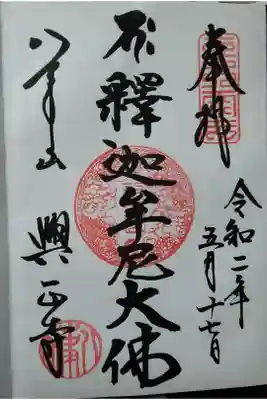 奉拝
令和二年
五月十七日
釋迦牟尼大佛
八事山
興正寺